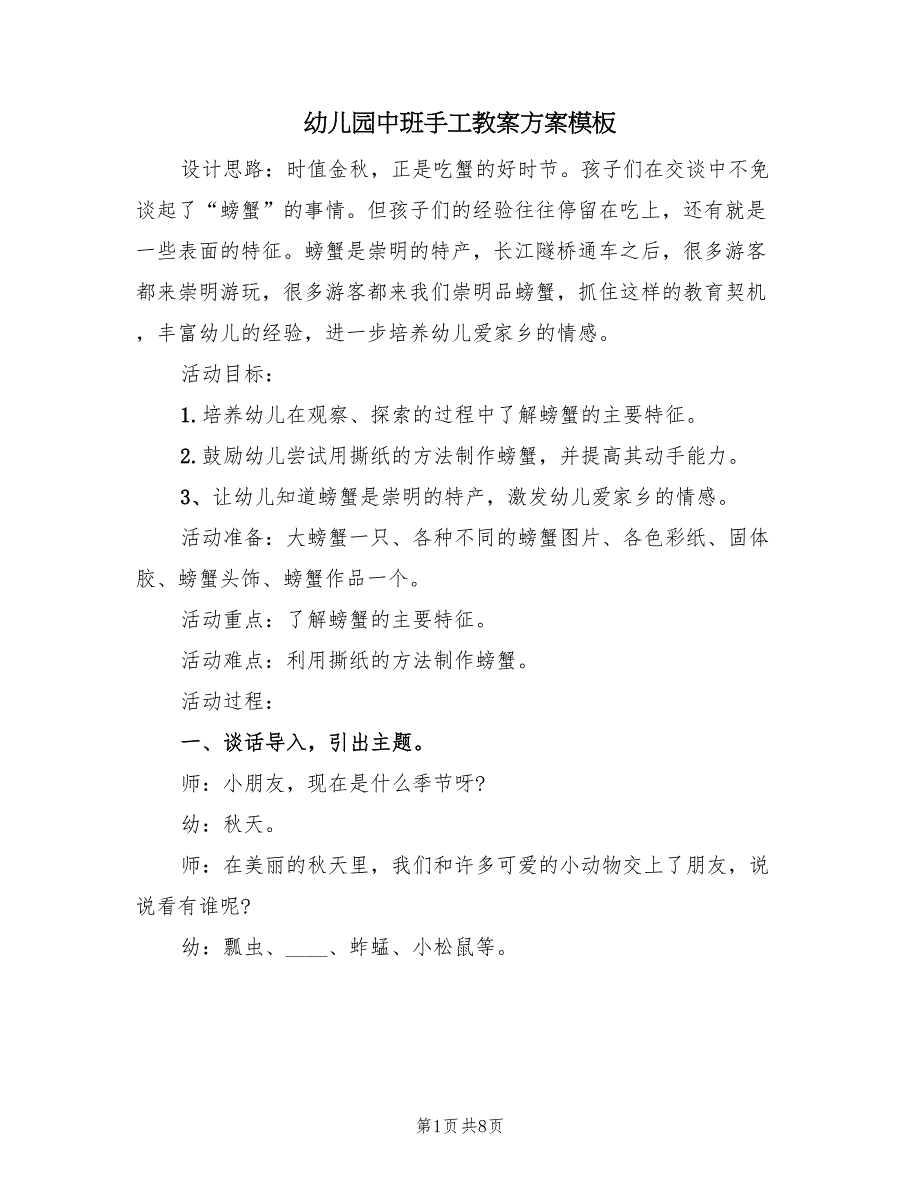 幼儿园中班手工教案方案模板
设计思路：时值金秋，正是吃蟹的好时节。孩子们在交谈中不免
谈起了“螃蟹”的事情。但孩子们的经验往往停留在吃上，还有就是
一些表面的特征。螃蟹是崇明的特产，长江隧桥通车之后，很多游客
都来崇明游玩，很多游客都来我们崇明品螃蟹，抓住这样的教育契机
，丰富幼儿的经验，进一步培养幼儿爱家乡的情感。
活动目标：
1.培养幼儿在观察、探索的过程中了解螃蟹的主要特征。
2.鼓励幼儿尝试用撕纸的方法制作螃蟹，并提高其动手能力。
3、让幼儿知道螃蟹是崇明的特产，激发幼儿爱家乡的情感。
活动准备：大螃蟹一只、各种不同的螃蟹图片、各色彩纸、固体
胶、螃蟹头饰、螃蟹作品一个。
活动重点：了解螃蟹的主要特征。
活动难点：利用撕纸的方法制作螃蟹。
活动过程：
一、谈话导入，引出主题。
师：小朋友，现在是什么季节呀?
幼：秋天。
师：在美丽的秋天里，我们和许多可爱的小动物交上了朋友，说
说看有谁呢?
幼：瓢虫、____、蚱蜢、小松鼠等。
第1页 共8页